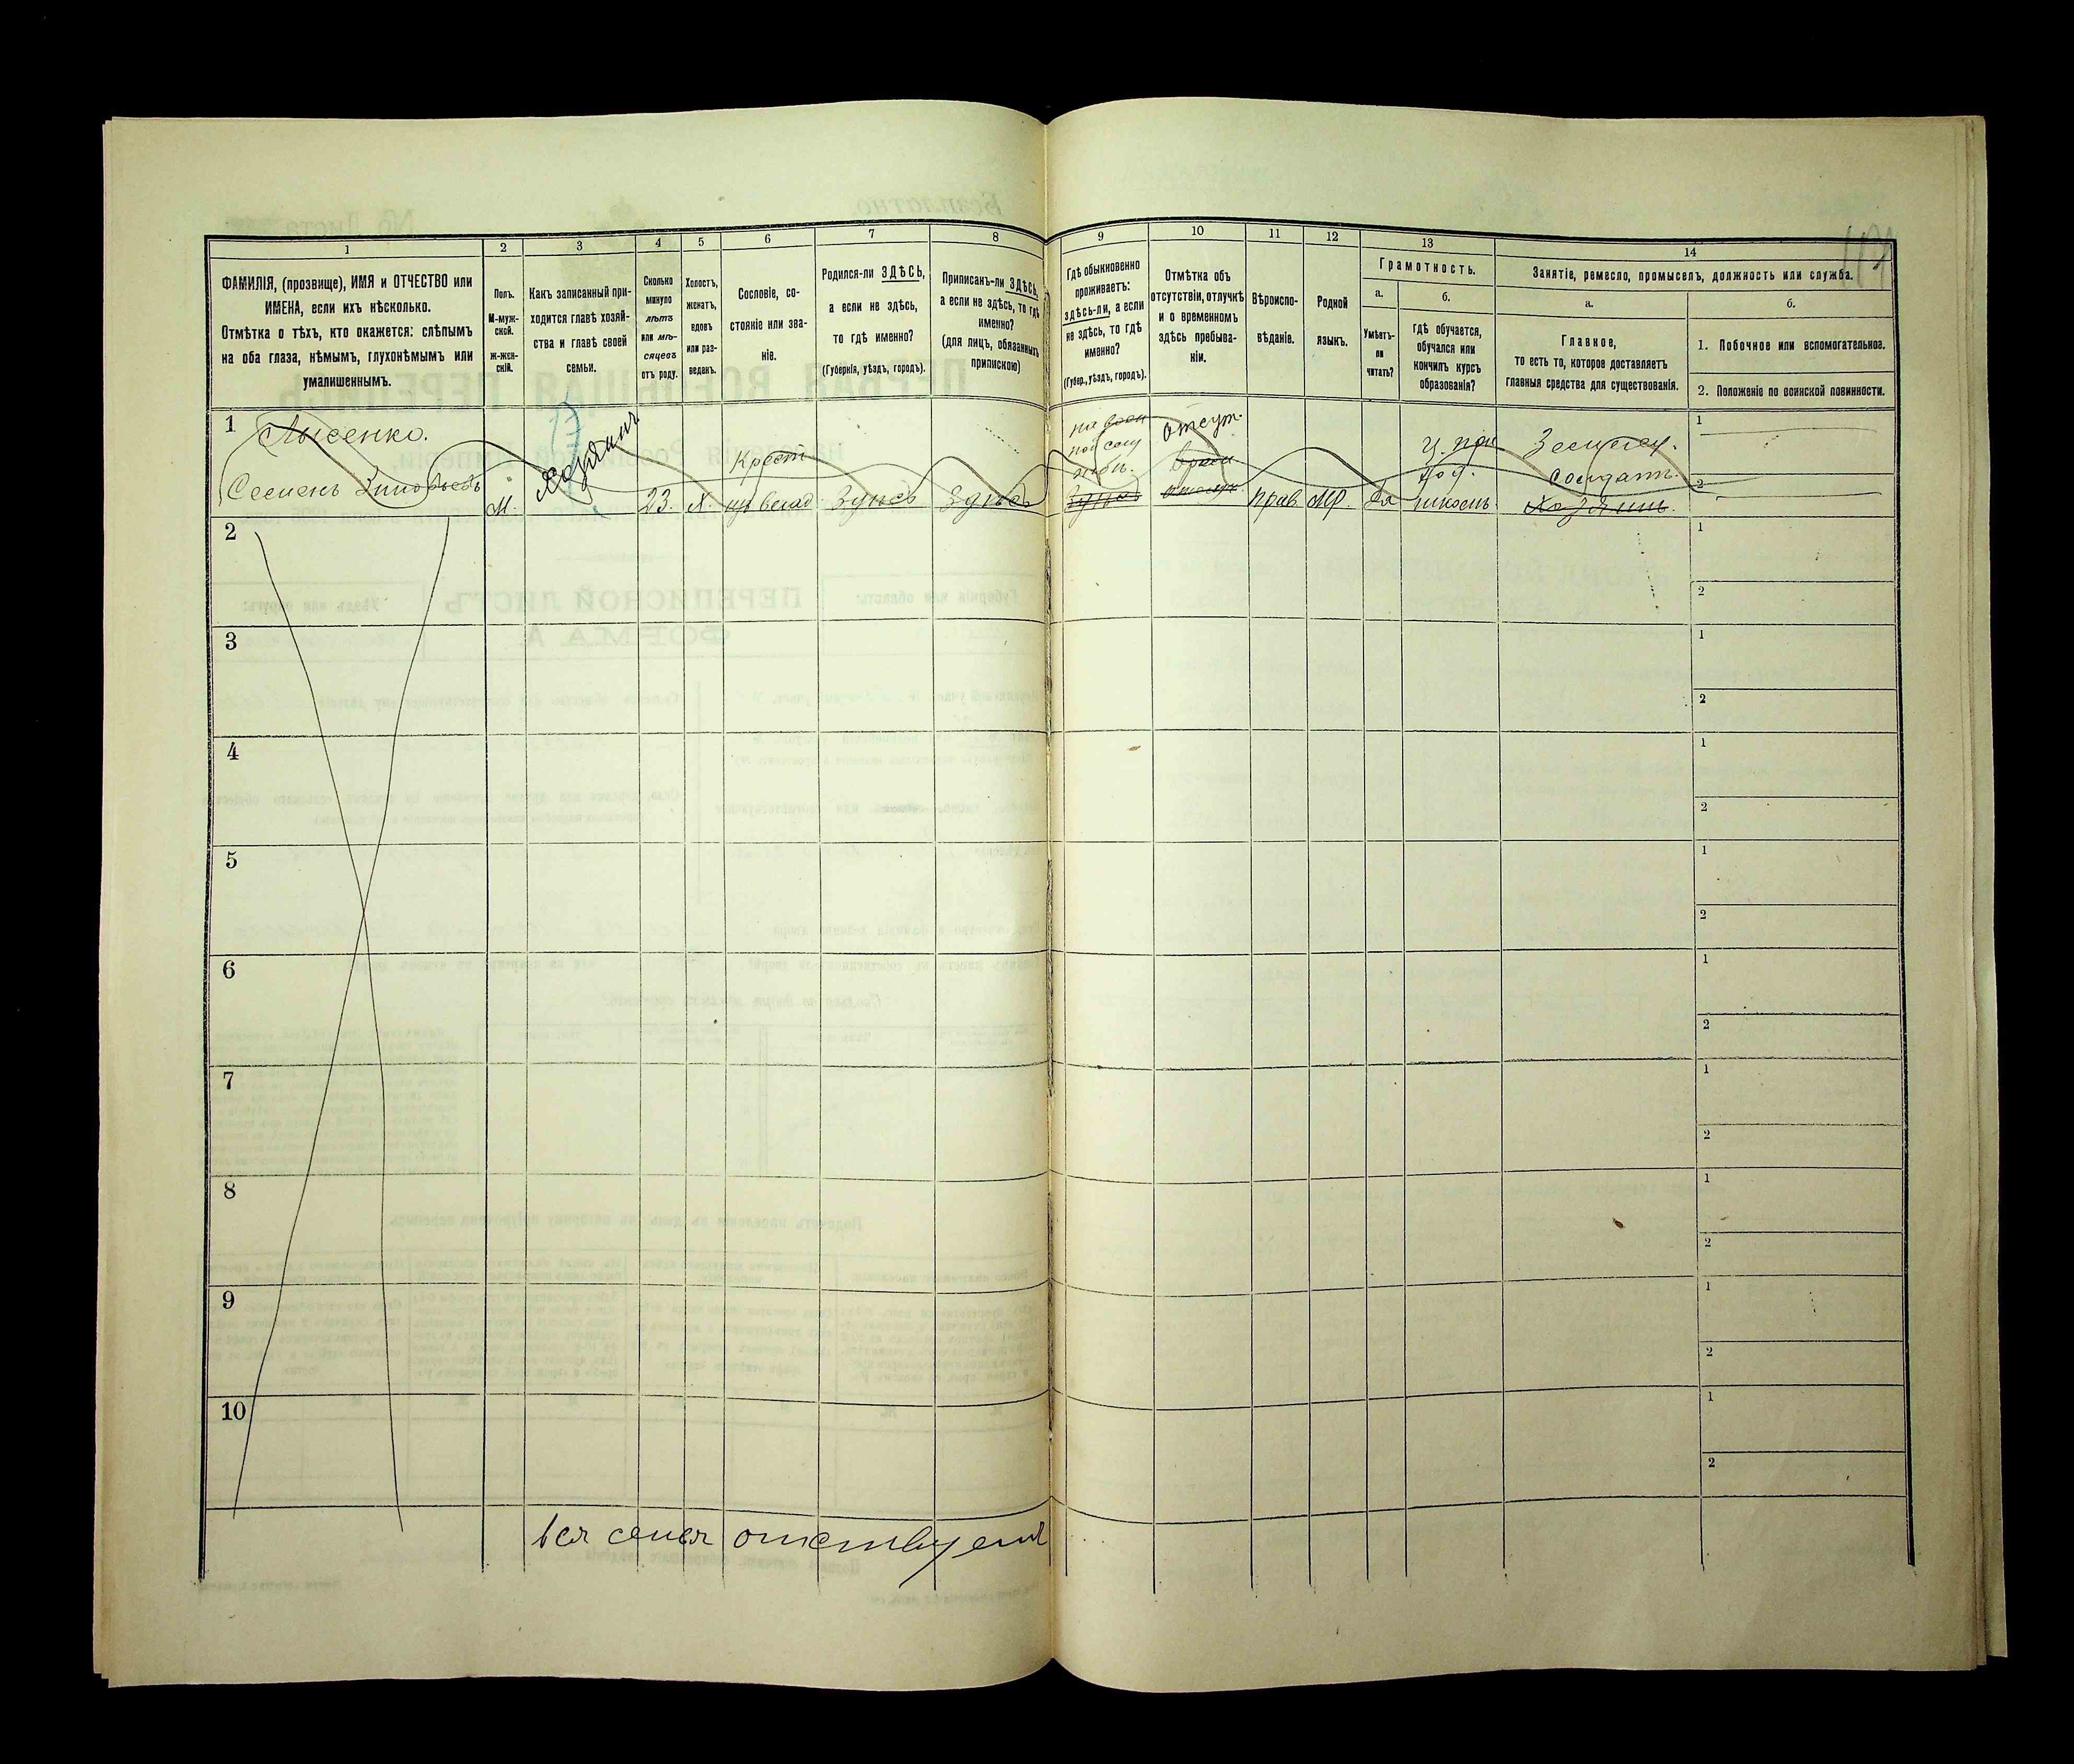 1 2 3 4 5 6 7 8 9 10 11 12 13 14
ФАМИЛІЯ, (прозвище), ИМЯ и ОТЧЕСТВО или
ИМЕНА, если ихъ нѣсколько.
Отмѣтка о тѣхъ, кто окажется: слѣпымъ
на оба глаза, нѣмымъ, глухонѣмымъ или
умалишеннымъ.
Полъ.
М-муж-
ской.
Ж-жен-
скій.
Какъ записанный при-
ходится главѣ хозяй-
ства и главѣ своей
семьи.
Сколько
минуло
лѣтъ
или мѣ-
сяцевъ
отъ роду.
Холостъ,
женатъ,
вдовъ
или раз-
веденъ.
Сословіе, со-
стояніе или зва-
ніе.
Родился-ли ЗДѢСЬ,
а если не здѣсь,
то гдѣ именно?
(Губернія, уѣздъ, городъ).
Приписанъ-ли ЗДѢСЬ,
а если не здѣсь, то гдѣ
именно?
(для лицъ, обязанныхъ
припискою)
Гдѣ обыкновенно
проживаетъ:
здѣсь-ли, а если
не здѣсь, то гдѣ
именно?
(Губер., уѣздъ, городъ).
Отмѣтка объ
отсутствіи, отлучкѣ
и о временномъ
здѣсь пребыва-
ніи.
Вѣроиспо-
вѣданіе.
Родной
языкъ.
Грамотность.
а.
Умѣетъ-
ли
читать?
б.
гдѣ обучается,
обучался или
кончилъ курсъ
образованія?
Занятіе, ремесло, промыселъ, должность или служба.
а.
Главное,
то есть то, которое доставляетъ
главныя средства для существованія.
б.
1. Побочное или вспомогательное.
2. Положеніе по воинской повинности.
1
Лысенко.
Семенъ Зиновьевъ
М.
Хозяинъ
23.
Х.
Крест
Здѣсь
Здѣсь
на воен
ной слу
жбѣ.
Здѣсь
отсут.
Прав.
Мр.
Да
ц. при
ход.
школѣ.
Земледѣл.
Солдатъ.
Хозяинъ.
1
2
2
1
2
3
1
2
4
1
2
5
1
2
6
1
2
7
1
2
8
1
2
9
1
2
10
1
2
вся семья